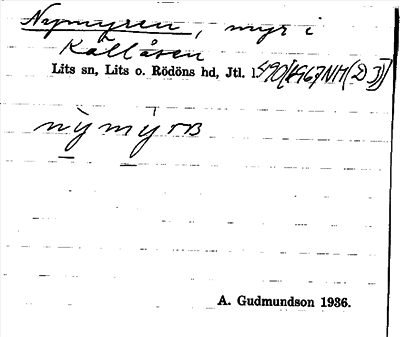 Nymyren, myr i
Kallåsen
Lits sn, Lits o. Rödöns hd, Jtl. 1490/1967 NH (DJ)
nỳmýrɴ
A. Gudmundson 1936.